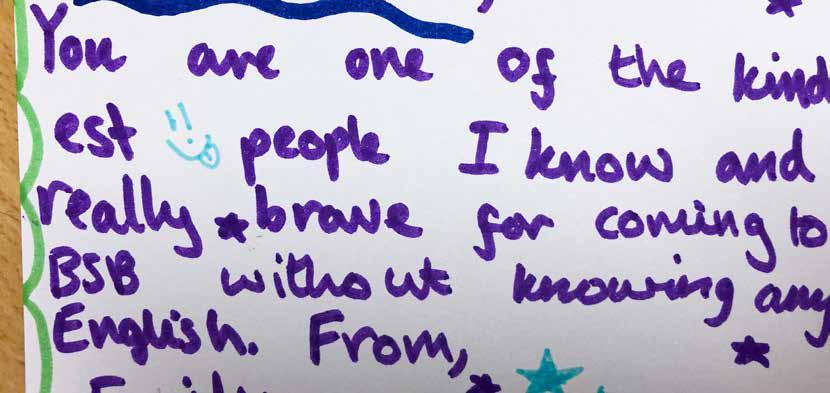 You are one of the kind
est people I know and
really brave for coming to
BSB without knowing any
English. From,